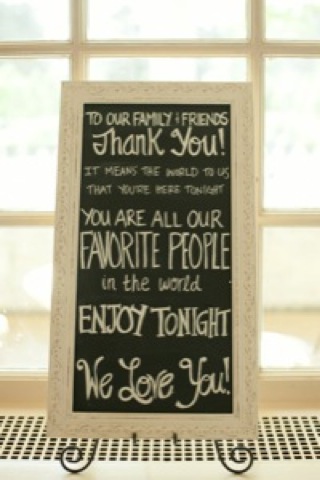 TO OUR FAMILY & FRIENDS
Thank You!
IT MEANS THE WORLD TO US
THAT YOU'RE HERE TONIGHT
YOU ARE ALL OUR
FAVORITE PEOPLE
in the world
ENJOY TONIGHT
We Love You!